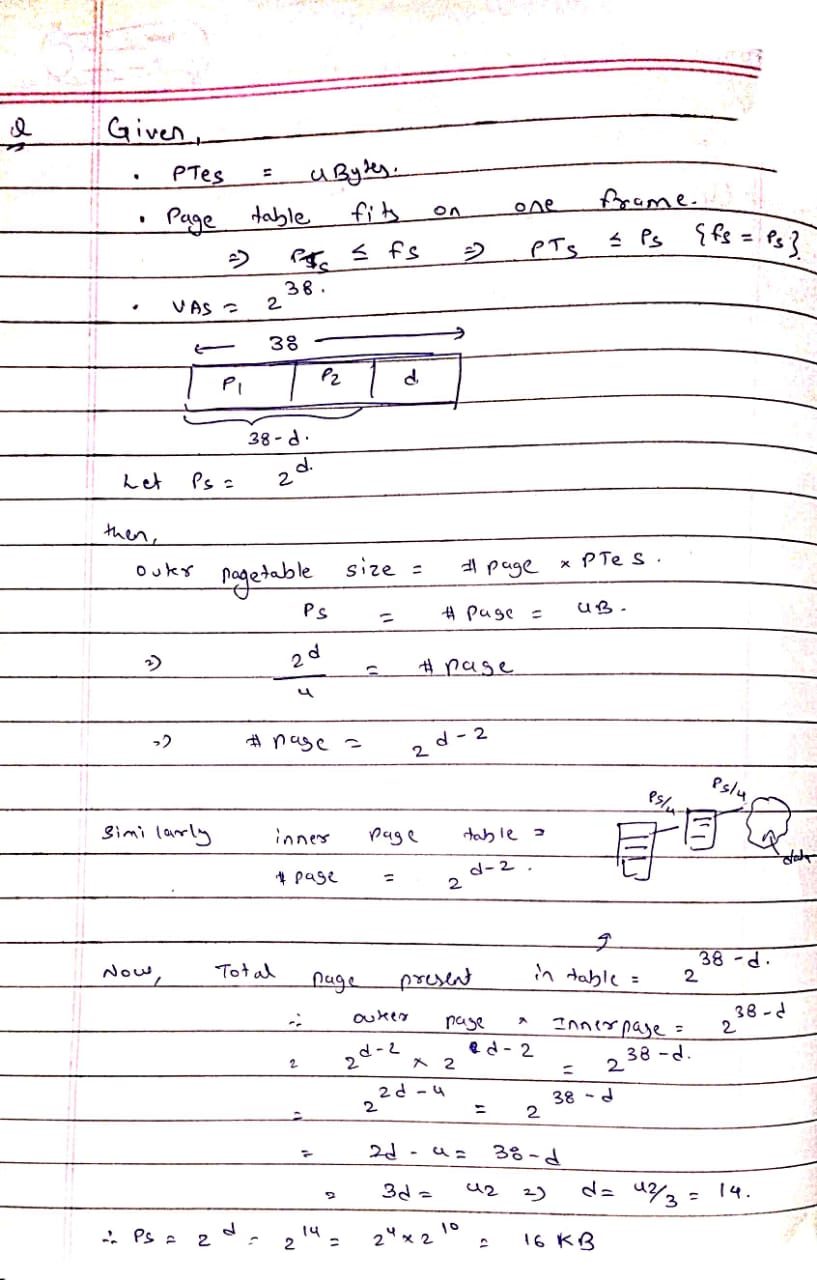 Q Given,
• PTes = 4 Bytes.
• Page table fits on one frame.
⇒ PTs ≤ fs ⇒ PTs ≤ Ps {fs = Ps}
• VAS = 2^38.
← 38 →
P1 P2 d
38-d.
Let Ps = 2^d.
then,
outer pagetable size = # page × PTes.
Ps = # Page = 4B.
⇒ 2^d/4 = # page
⇒ # page = 2^(d-2)
Ps/4 Ps/4
Similarly inner page table =
data
# page = 2^(d-2).
Now, Total page present in table = 2^(38-d).
∴ outer page × Innerpage = 2^(38-d)
= 2^(d-2) × 2^(d-2) = 2^(38-d).
= 2^(2d-4) = 2^(38-d)
= 2d - 4 = 38-d
= 3d = 42 ⇒ d = 42/3 = 14.
∴ Ps = 2^d = 2^14 = 2^4 × 2^10 = 16 KB